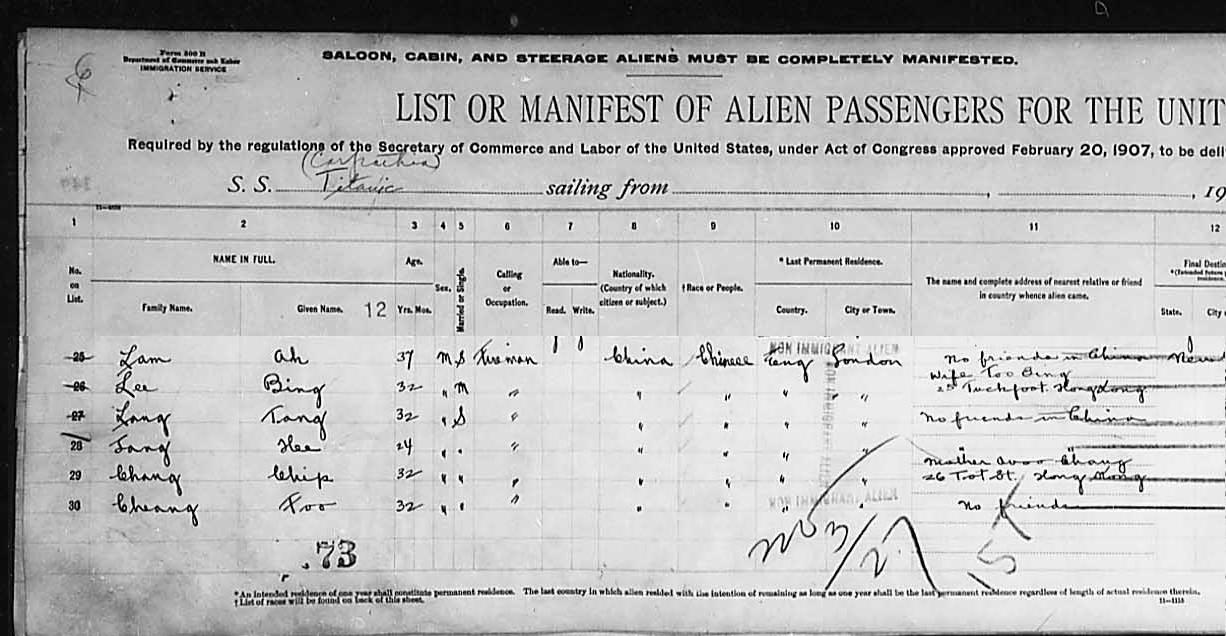 Form 500 B
Department of Commerce and Labor
IMMIGRATION SERVICE
SALOON, CABIN, AND STEERAGE ALIENS MUST BE COMPLETELY MANIFESTED.
LIST OR MANIFEST OF ALIEN PASSENGERS FOR THE UNIT
Required by the regulations of the Secretary of Commerce and Labor of the United States, under Act of Congress approved February 20, 1907, to be deli
(Carpathia)
S. S. Titanic sailing from , , 19
1 2 3 4 5 6 7 8 9 10 11 12
No. on List. NAME IN FULL. Age. Sex. Married or Single. Calling or Occupation. Able to— Nationality. (Country of which citizen or subject.) †Race or People. *Last Permanent Residence. The name and complete address of nearest relative or friend in country whence alien came. Final Desti
Family Name. Given Name. 12 Yrs. Mos. Read. Write. Country. City or Town. State. City
NON IMMIGRANT ALIEN
25 Lam Ah 37 M S Fireman China Chinese Eng London No friends in China
26 Lee Bing 32 " M " " " " " Wife Too Bing
Hong Kong
27 Lang Tang 32 " S " " " " " No friends in China
28 Fang Hee 24 " " " " " " "
29 Chang Chip 32 " " " " " " " Mother Chang
26 Tot St. Hong Kong
30 Cheang Foo 32 " " " " " " " No friends
NON IMMIGRANT ALIEN
.73
*An intended residence of one year shall constitute permanent residence. The last country in which alien resided with the intention of remaining as long as one year shall be the last permanent residence regardless of length of actual residence therein.
†List of races will be found on back of this sheet.
11—1115